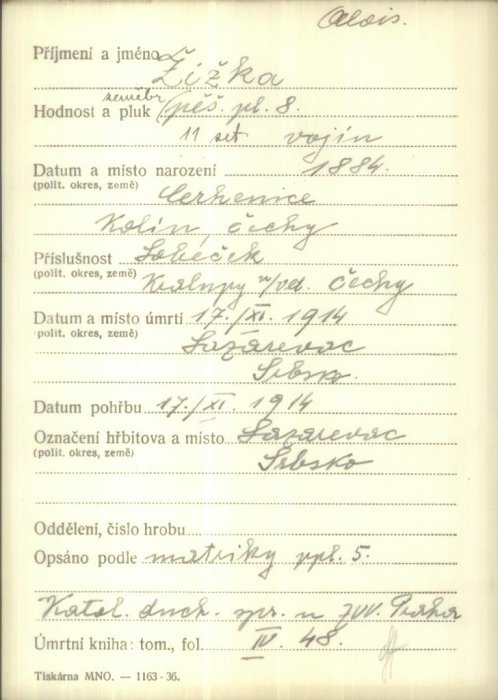 Alois.
Příjmení a jméno Žižka
zeměbr.
Hodnost a pluk pěš. pl. 8.
11 set. vojín
Datum a místo narození 1884.
(polit. okres, země) Cerhenice
Kolín, čechy
Příslušnost Lobeček
(polit. okres, země) Kralupy n/vl. čechy
Datum a místo úmrtí 17./XI. 1914
(polit. okres, země) Lazarevac
Srbsko.
Datum pohřbu 17./XI. 1914
Označení hřbitova a místo Lazarevac
(polit. okres, země) Srbsko
Oddělení, číslo hrobu
Opsáno podle matriky ppl. 5.
Katol. duch. spr. u ZVV. Praha
Úmrtní kniha: tom., fol. IV. 48.
Tiskárna MNO. — 1163-36.